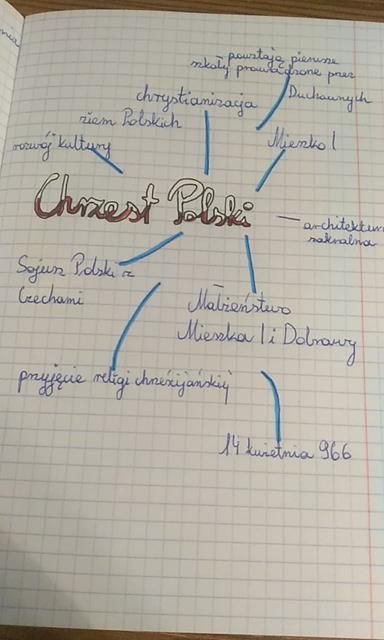 powstają pierwsze
szkoły prowadzone przez
Duchownych
chrystianizacja
ziem Polskich
Mieszko I
rozwój kultury
Chrzest Polski
architektura
sakralna
Sojusz Polski z
Czechami
Małżeństwo
Mieszka I i Dobrawy
przyjęcie religi chrześcijańskiej
14 kwietnia 966